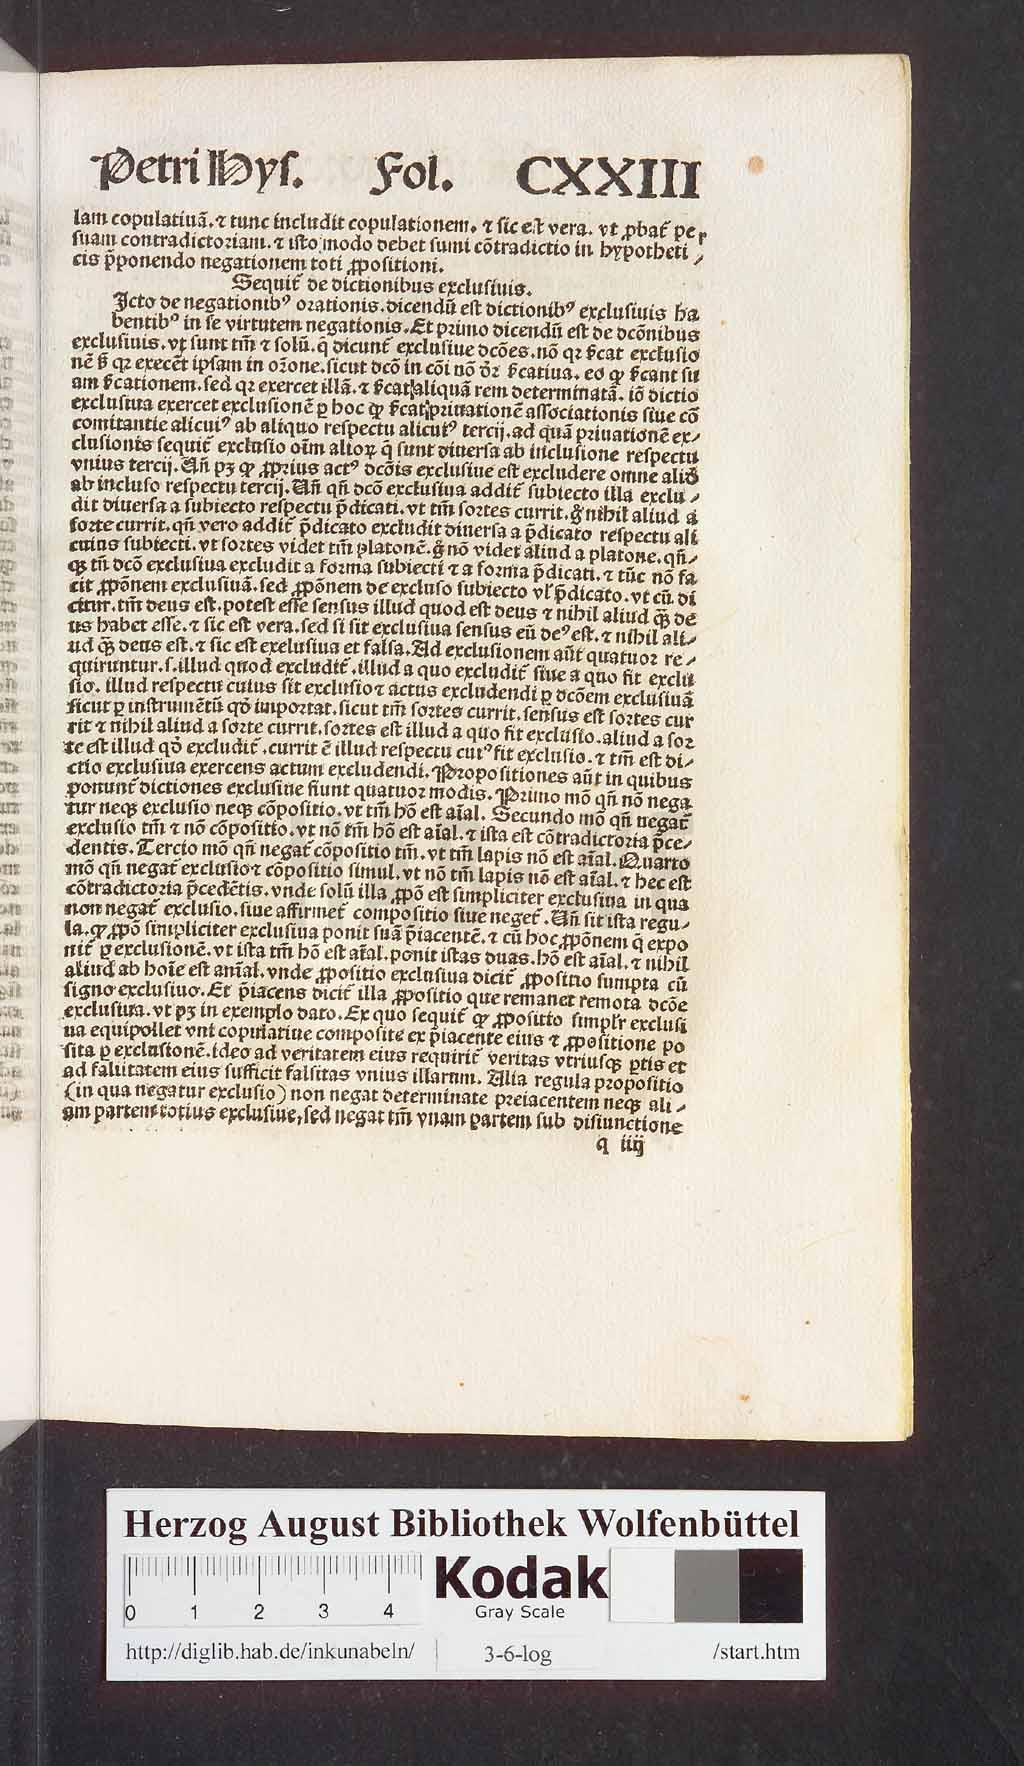 Petri Hys. Fol. CXXIII
lam copulatiuã. ⁊ tunc includit copulationem. ⁊ sic est vera. vt ꝓbat̃ pe⸝
suam contradictoriam. ⁊ isto modo debet sumi cõtradictio in hypotheti⸝
cis p̃ponendo negationem toti ꝓpositioni.
Sequit̃ de dictionibus exclusiuis.
Icto de negationibꝰ orationis. dicendũ est dictionibꝰ exclusiuis ha
bentibꝰ in se virtutem negationis. Et primo dicendũ est de dcõnibus
exclusiuis. vt sunt tm̃ ⁊ solũ. q̃ dicunt̃ exclusiue dcões. nõ qr exclusio
nẽ qr execẽt ipsam in or̃one. sicut dcõ in cõi nõ eo ꝙ su
am sed qr exercet illã. ⁊ aliquã rem determinatã. iõ dictio
exclusiua exercet exclusionẽ ꝑ hoc ꝙ priuationẽ associationis siue cõ
comitantie alicuiꝰ ab aliquo respectu alicuiꝰ tercij. ad quã priuationẽ ex⸝
clusionis sequit̃ exclusio oĩm alioꝝ q̃ sunt diuersa ab inclusione respectu
vnius tercij. Uñ pꝫ ꝙ ꝓprius actꝰ dcõis exclusiue est excludere omne aliõ
ab incluso respectu tercij. Uñ qñ dcõ exclusiua addit̃ subiecto illa exclu⸝
dit diuersa a subiecto respectu p̃dicati. vt tm̃ sortes currit. nihil aliud a
sorte currit. qñ vero addit̃ p̃dicato excludit diuersa a p̃dicato respectu ali
cuius subiecti. vt sortes videt tm̃ platonẽ. nõ videt aliud a platone. qñ⸝
qꝫ tñ dcõ exclusiua excludit a forma subiecti ⁊ a forma p̃dicati. ⁊ tũc nõ fa
cit ꝓpõnem exclusiuã. sed ꝓpõnem de excluso subiecto vl̃ p̃dicato. vt cũ di
citur. tm̃ deus est. potest esse sensus illud quod est deus ⁊ nihil aliud qꝫ̃ de
us habet esse. ⁊ sic est vera. sed si sit exclusiua sensus eũ deꝰ est. ⁊ nihil ali⸝
ud qꝫ̃ deus est. ⁊ sic est exclusiua et falsa. Ad exclusionem aũt quatuor re⸝
quiruntur. s. illud quod excludit̃. illud a quo excludit̃ siue a quo fit exclu
sio. illud respectu cuius fit exclusio ⁊ actus excludendi ꝑ dcõem exclusiuã
sicut ꝑ instrumẽtũ qõ importat. sicut tm̃ sortes currit. sensus est sortes cur
rit ⁊ nihil aliud a sorte currit. sortes est illud a quo fit exclusio. aliud a sor
te est illud qõ excludit̃. currit ẽ illud respectu cuiꝰ fit exclusio. ⁊ tm̃ est di⸝
ctio exclusiua exercens actum excludendi. Propositiones aũt in quibus
ponunt̃ dictiones exclusiue fiunt quatuor modis. Primo mõ qñ nõ nega
tur neqꝫ exclusio neqꝫ cõpositio. vt tm̃ hõ est aĩal. Secundo mõ qñ negat̃
exclusio tm̃ ⁊ nõ cõpositio. vt nõ tm̃ hõ est aĩal. ⁊ ista est cõtradictoria p̃ce⸝
dentis. Tercio mõ qñ negat̃ cõpositio tm̃. vt tm̃ lapis nõ est aĩal. Quarto
mõ qñ negat̃ exclusio ⁊ cõpositio simul. vt nõ tm̃ lapis nõ est aĩal. ⁊ hec est
cõtradictoria p̃cedẽtis. vnde solũ illa ꝓpõ est simpliciter exclusiua in qua
non negat̃ exclusio. siue affirmet̃ compositio siue neget̃. Uñ sit ista regu⸝
la. ꝙ ꝓpõ simpliciter exclusiua ponit suã p̃iacentẽ. ⁊ cũ hoc ꝓpõnem q̃ expo
nit̃ ꝑ exclusionẽ. vt ista tm̃ hõ est aĩal. ponit istas duas. hõ est aĩal. ⁊ nihil
aliud ab hoĩe est anĩal. vnde ꝓpositio exclusiua dicit̃ ꝓpositio sumpta cũ
signo exclusiuo. Et p̃iacens dicit̃ illa ꝓpositio que remanet remota dcõe
exclusiua. vt pꝫ in exemplo dato. Ex quo sequit̃ ꝙ ꝓpositio simpl̃r exclusi
ua equipollet vni copulatiue composite ex p̃iacente eius ⁊ ꝓpositione po
sita ꝑ exclusionẽ. ideo ad veritatem eius requirit̃ veritas vtriusqꝫ ꝑtis et
ad falsitatem eius sufficit falsitas vnius illarum. Alia regula propositio
(in qua negatur exclusio) non negat determinate preiacentem neqꝫ ali⸝
am partem totius exclusiue, sed negat tm̃ vnam partem sub disiunctione
q iiij
Herzog August Bibliothek Wolfenbüttel
0 1 2 3 4
Kodak
Gray Scale
http://diglib.hab.de/inkunabeln/ 3-6-log /start.htm